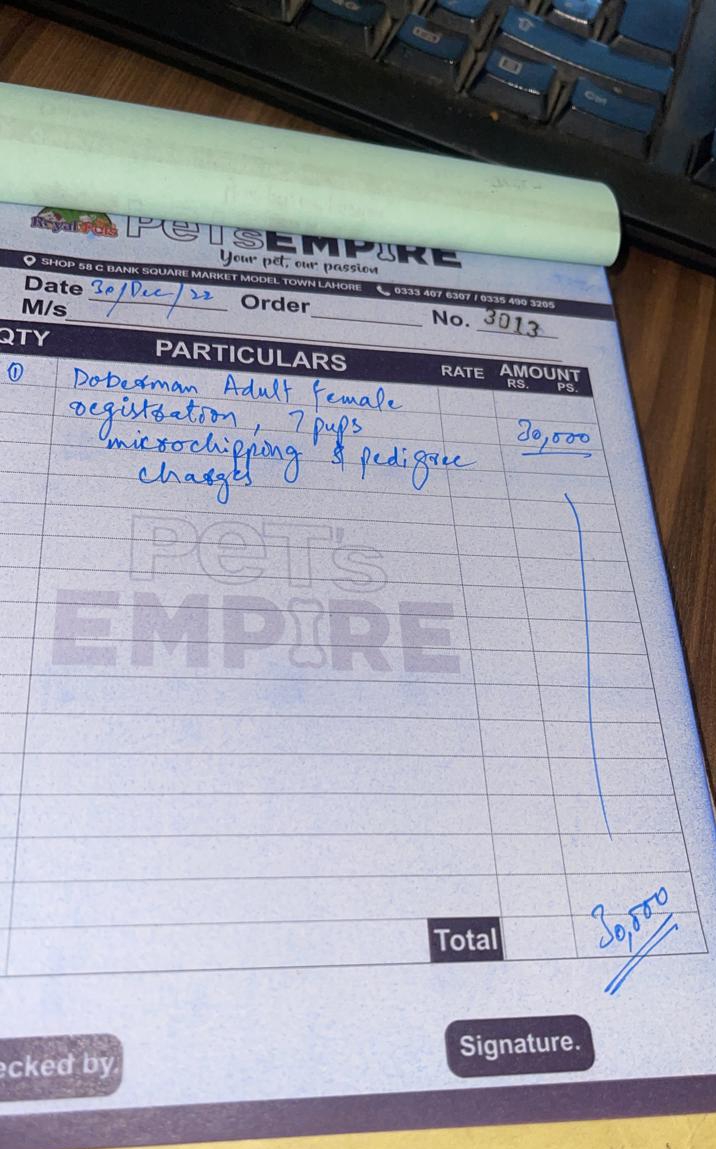 Royal Pets
PETS EMPIRE
Your pet, our passion
SHOP 58 C BANK SQUARE MARKET MODEL TOWN LAHORE 0333 407 6307 / 0335 490 3205
Date 30/Dec/22 Order No. 3013
M/s
QTY PARTICULARS RATE AMOUNT
RS. PS.
① Doberman Adult female
registration, 7 pups 30,000
microchipping & pedigree
charges
PET's
EMPIRE
Total 30,000
ecked by. Signature.